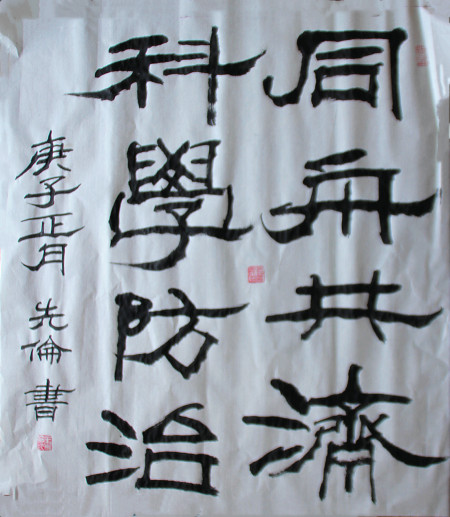 同舟共濟
科學防治
庚子正月 先倫書